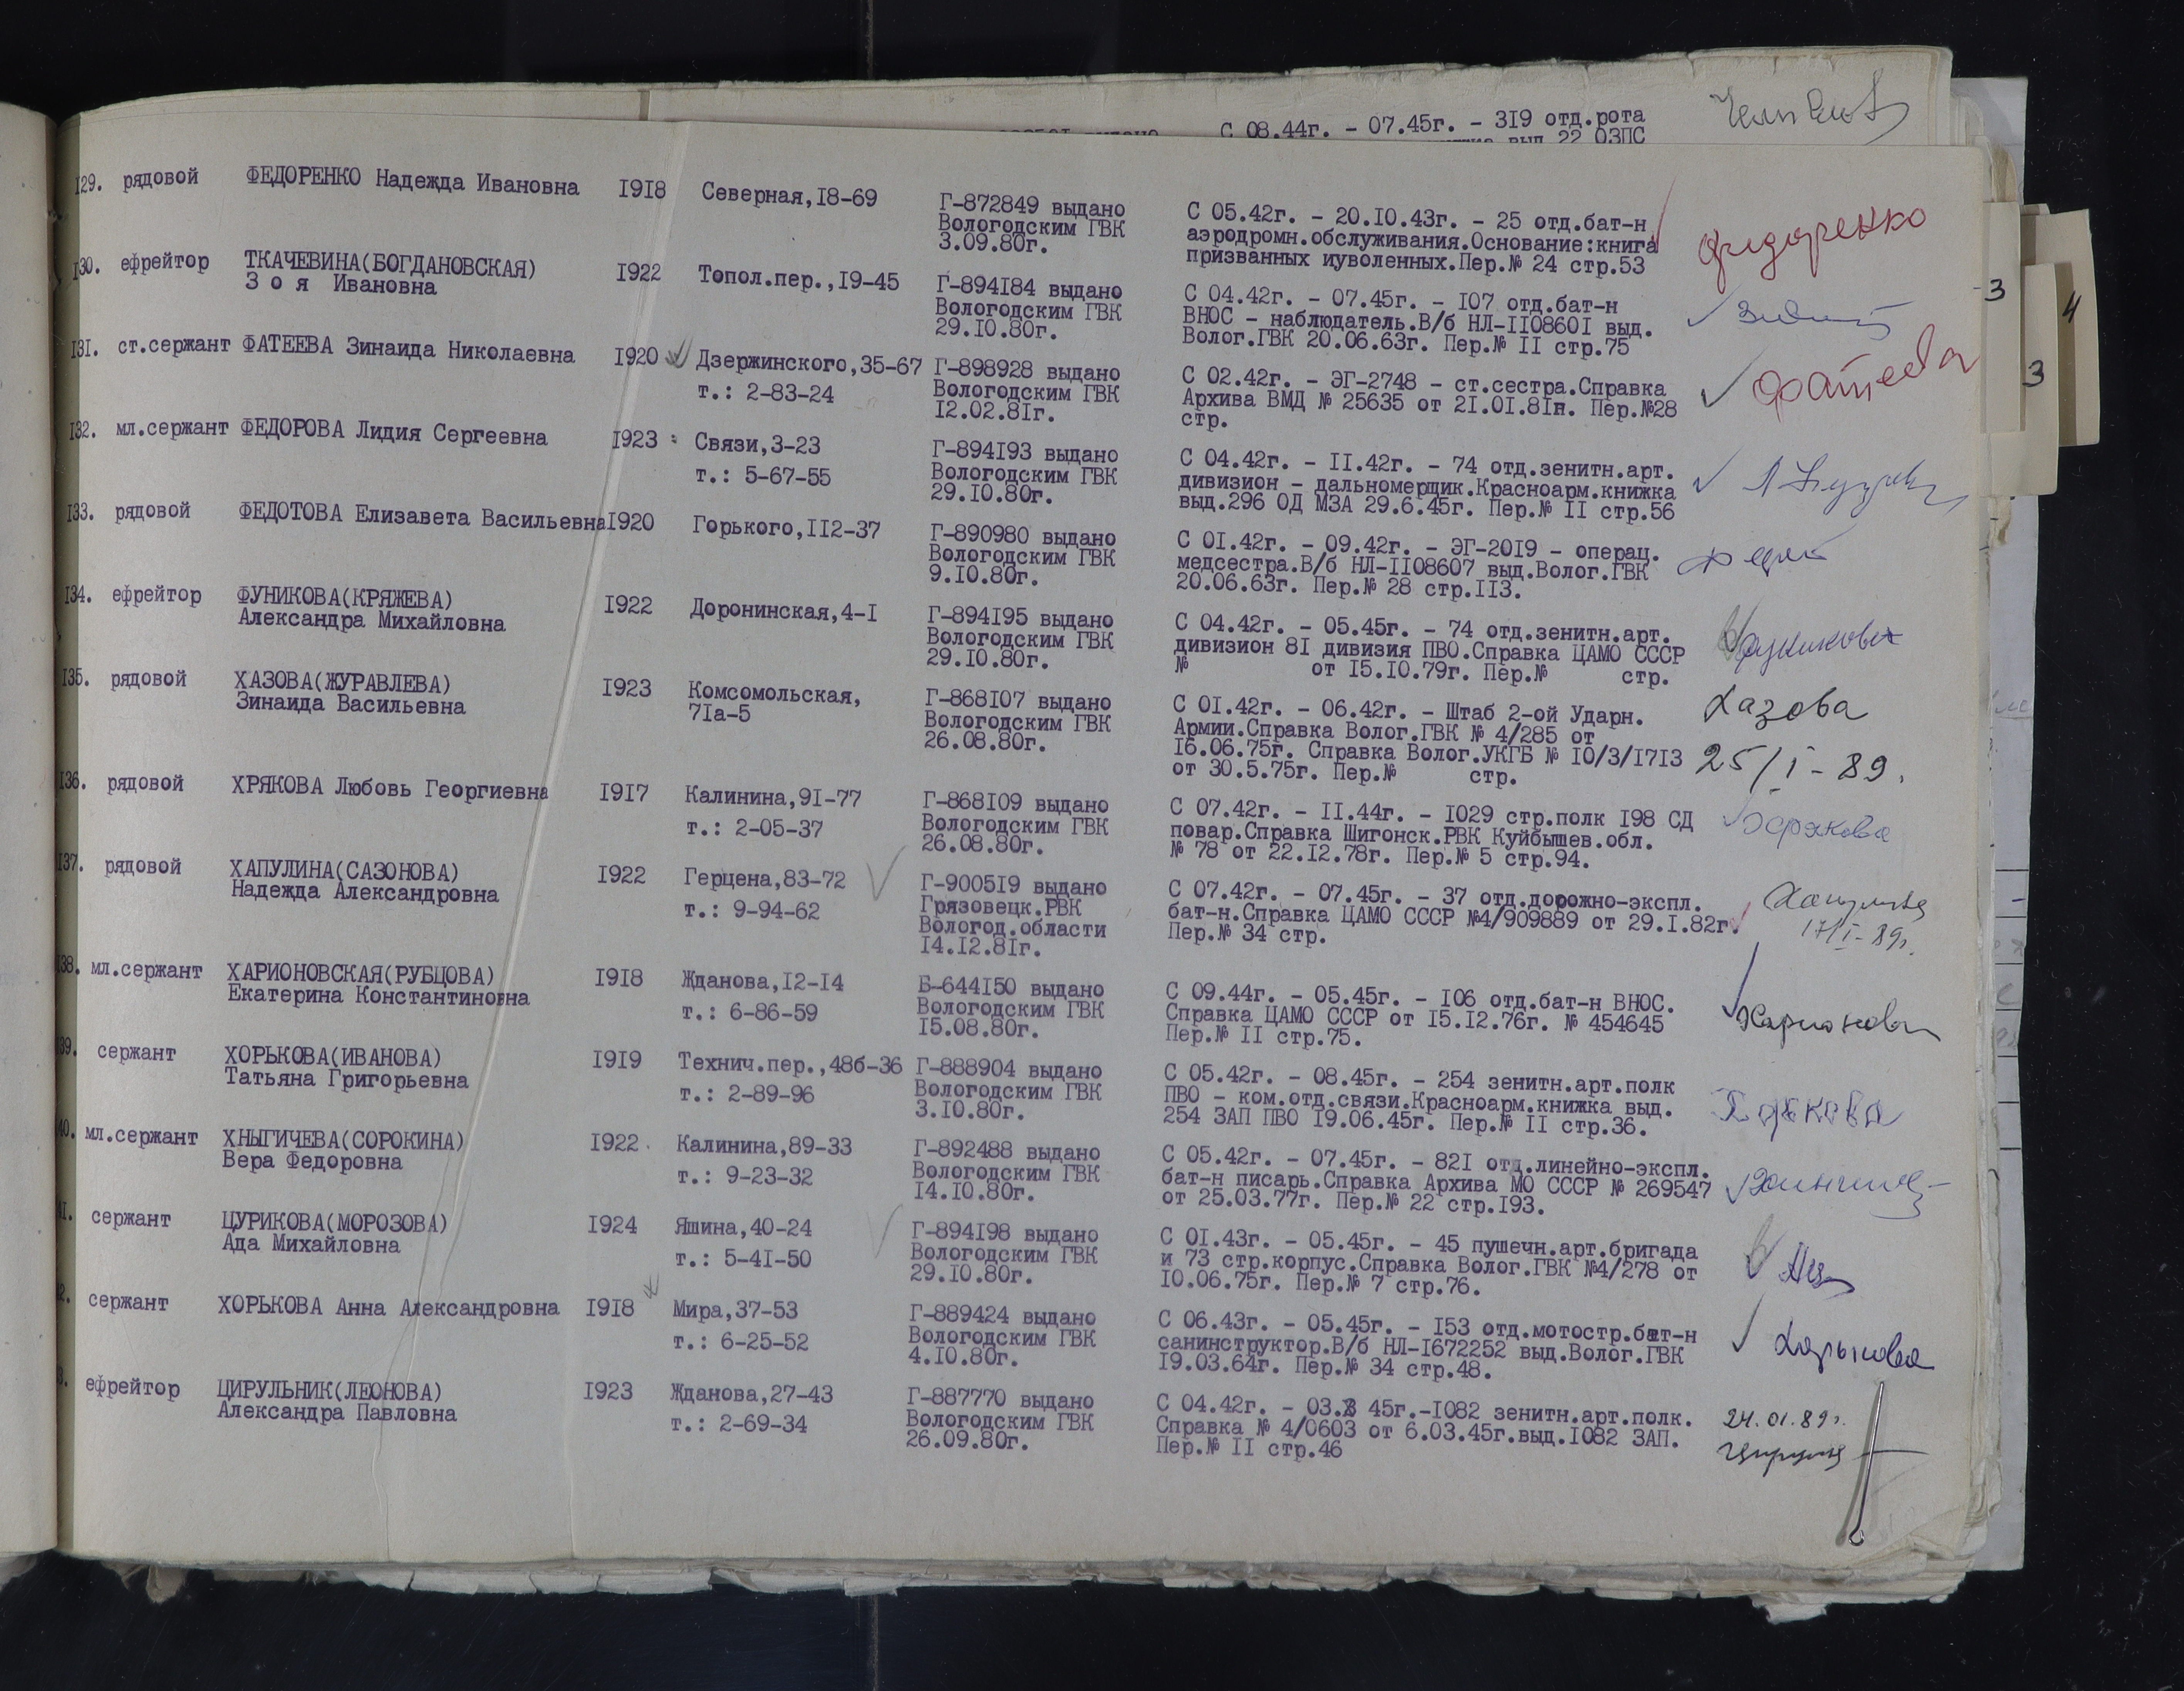 С 08.44г. - 07.45г. - 319 отд.рота
выд 22 ОЗПС
129. рядовой ФЕДОРЕНКО Надежда Ивановна 1918 Северная,18-69
Г-872849 выдано
Вологодским ГВК
3.09.80г.
С 05.42г. - 20.10.43г. - 25 отд.бат-н
аэродромн.обслуживания.Основание:книга
призванных иуволенных.Пер.№ 24 стр.53
Фидоренко
130. ефрейтор ТКАЧЕВИНА(БОГДАНОВСКАЯ)
З о я Ивановна
1922 Топол.пер.,19-45
Г-894184 выдано
Вологодским ГВК
29.10.80г.
С 04.42г. - 07.45г. - 107 отд.бат-н
ВНОС - наблюдатель.В/б НЛ-1108601 выд.
Волог.ГВК 20.06.63г. Пер.№ 11 стр.75
3
4
131. ст.сержант ФАТЕЕВА Зинаида Николаевна 1920 Дзержинского,35-67
т.: 2-83-24
Г-898928 выдано
Вологодским ГВК
12.02.81г.
С 02.42г. - ЭГ-2748 - ст.сестра.Справка
Архива ВМД № 25635 от 21.01.81н. Пер.№28
стр.
Фатеева
3
132. мл.сержант ФЕДОРОВА Лидия Сергеевна 1923 Связи,3-23
т.: 5-67-55
Г-894193 выдано
Вологодским ГВК
29.10.80г.
С 04.42г. - 11.42г. - 74 отд.зенитн.арт.
дивизион - дальномерщик.Красноарм.книжка
выд.296 ОД МЗА 29.6.45г. Пер.№ 11 стр.56
133. рядовой ФЕДОТОВА Елизавета Васильевна1920 Горького,112-37
Г-890980 выдано
Вологодским ГВК
9.10.80г.
С 01.42г. - 09.42г. - ЭГ-2019 - операц.
медсестра.В/б НЛ-1108607 выд.Волог.ГВК
20.06.63г. Пер.№ 28 стр.113.
134. ефрейтор ФУНИКОВА(КРЯЖЕВА)
Александра Михайловна
1922 Доронинская,4-1
Г-894195 выдано
Вологодским ГВК
29.10.80г.
С 04.42г. - 05.45г. - 74 отд.зенитн.арт.
дивизион 81 дивизия ПВО.Справка ЦАМО СССР
№ от 15.10.79г. Пер.№ стр.
Фуникова
135. рядовой ХАЗОВА(ЖУРАВЛЕВА)
Зинаида Васильевна
1923 Комсомольская,
71а-5
Г-868107 выдано
Вологодским ГВК
26.08.80г.
С 01.42г. - 06.42г. - Штаб 2-ой Ударн.
Армии.Справка Волог.ГВК № 4/285 от
16.06.75г. Справка Волог.УКГБ № 10/3/1713
от 30.5.75г. Пер.№ стр.
Хазова
25/I-89.
136. рядовой ХРЯКОВА Любовь Георгиевна 1917 Калинина,91-77
т.: 2-05-37
Г-868109 выдано
Вологодским ГВК
26.08.80г.
С 07.42г. - 11.44г. - 1029 стр.полк 198 СД
повар.Справка Шигонск.РВК Куйбышев.обл.
№ 78 от 22.12.78г. Пер.№ 5 стр.94.
137. рядовой ХАПУЛИНА(САЗОНОВА)
Надежда Александровна
1922 Герцена,83-72
т.: 9-94-62
Г-900519 выдано
Грязовецк.РВК
Вологод.области
14.12.81г.
С 07.42г. - 07.45г. - 37 отд.дорожно-экспл.
бат-н.Справка ЦАМО СССР №4/909889 от 29.1.82г.
Пер.№ 34 стр.
Хапулина
17/I-89г.
138. мл.сержант ХАРИОНОВСКАЯ(РУБЦОВА)
Екатерина Константиновна
1918 Жданова,12-14
т.: 6-86-59
Б-644150 выдано
Вологодским ГВК
15.08.80г.
С 09.44г. - 05.45г. - 106 отд.бат-н ВНОС.
Справка ЦАМО СССР от 15.12.76г. № 454645
Пер.№ 11 стр.75.
39. сержант ХОРЬКОВА(ИВАНОВА)
Татьяна Григорьевна
1919 Технич.пер.,48б-36
т.: 2-89-96
Г-888904 выдано
Вологодским ГВК
3.10.80г.
С 05.42г. - 08.45г. - 254 зенитн.арт.полк
ПВО - ком.отд.связи.Красноарм.книжка выд.
254 ЗАП ПВО 19.06.45г. Пер.№ 11 стр.36.
Хорькова
40. мл.сержант ХНЫГИЧЕВА(СОРОКИНА)
Вера Федоровна
1922 Калинина,89-33
т.: 9-23-32
Г-892488 выдано
Вологодским ГВК
14.10.80г.
С 05.42г. - 07.45г. - 821 отд.линейно-экспл.
бат-н писарь.Справка Архива МО СССР № 269547
от 25.03.77г. Пер.№ 22 стр.193.
41. сержант ЦУРИКОВА(МОРОЗОВА)
Ада Михайловна
1924 Яшина,40-24
т.: 5-41-50
Г-894198 выдано
Вологодским ГВК
29.10.80г.
С 01.43г. - 05.45г. - 45 пушечн.арт.бригада
и 73 стр.корпус.Справка Волог.ГВК №4/278 от
10.06.75г. Пер.№ 7 стр.76.
2. сержант ХОРЬКОВА Анна Александровна 1918 Мира,37-53
т.: 6-25-52
Г-889424 выдано
Вологодским ГВК
4.10.80г.
С 06.43г. - 05.45г. - 153 отд.мотостр.бат-н
санинструктор.В/б НЛ-1672252 выд.Волог.ГВК
19.03.64г. Пер.№ 34 стр.48.
Хорькова
3. ефрейтор ЦИРУЛЬНИК(ЛЕОНОВА)
Александра Павловна
1923 Жданова,27-43
т.: 2-69-34
Г-887770 выдано
Вологодским ГВК
26.09.80г.
С 04.42г. - 03. 45г.-1082 зенитн.арт.полк.
Справка № 4/0603 от 6.03.45г.выд.1082 ЗАП.
Пер.№ 11 стр.46
24.01.89г.